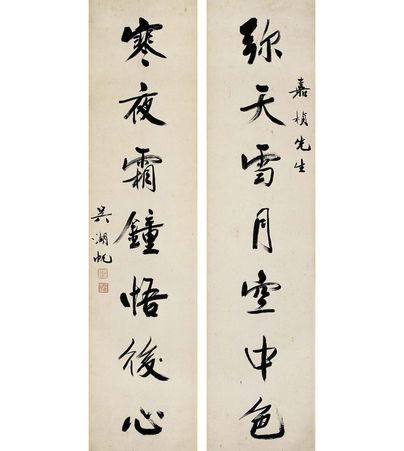 弥天雪月空中色
嘉楨先生
寒夜霜鐘悟後心
吴湖帆